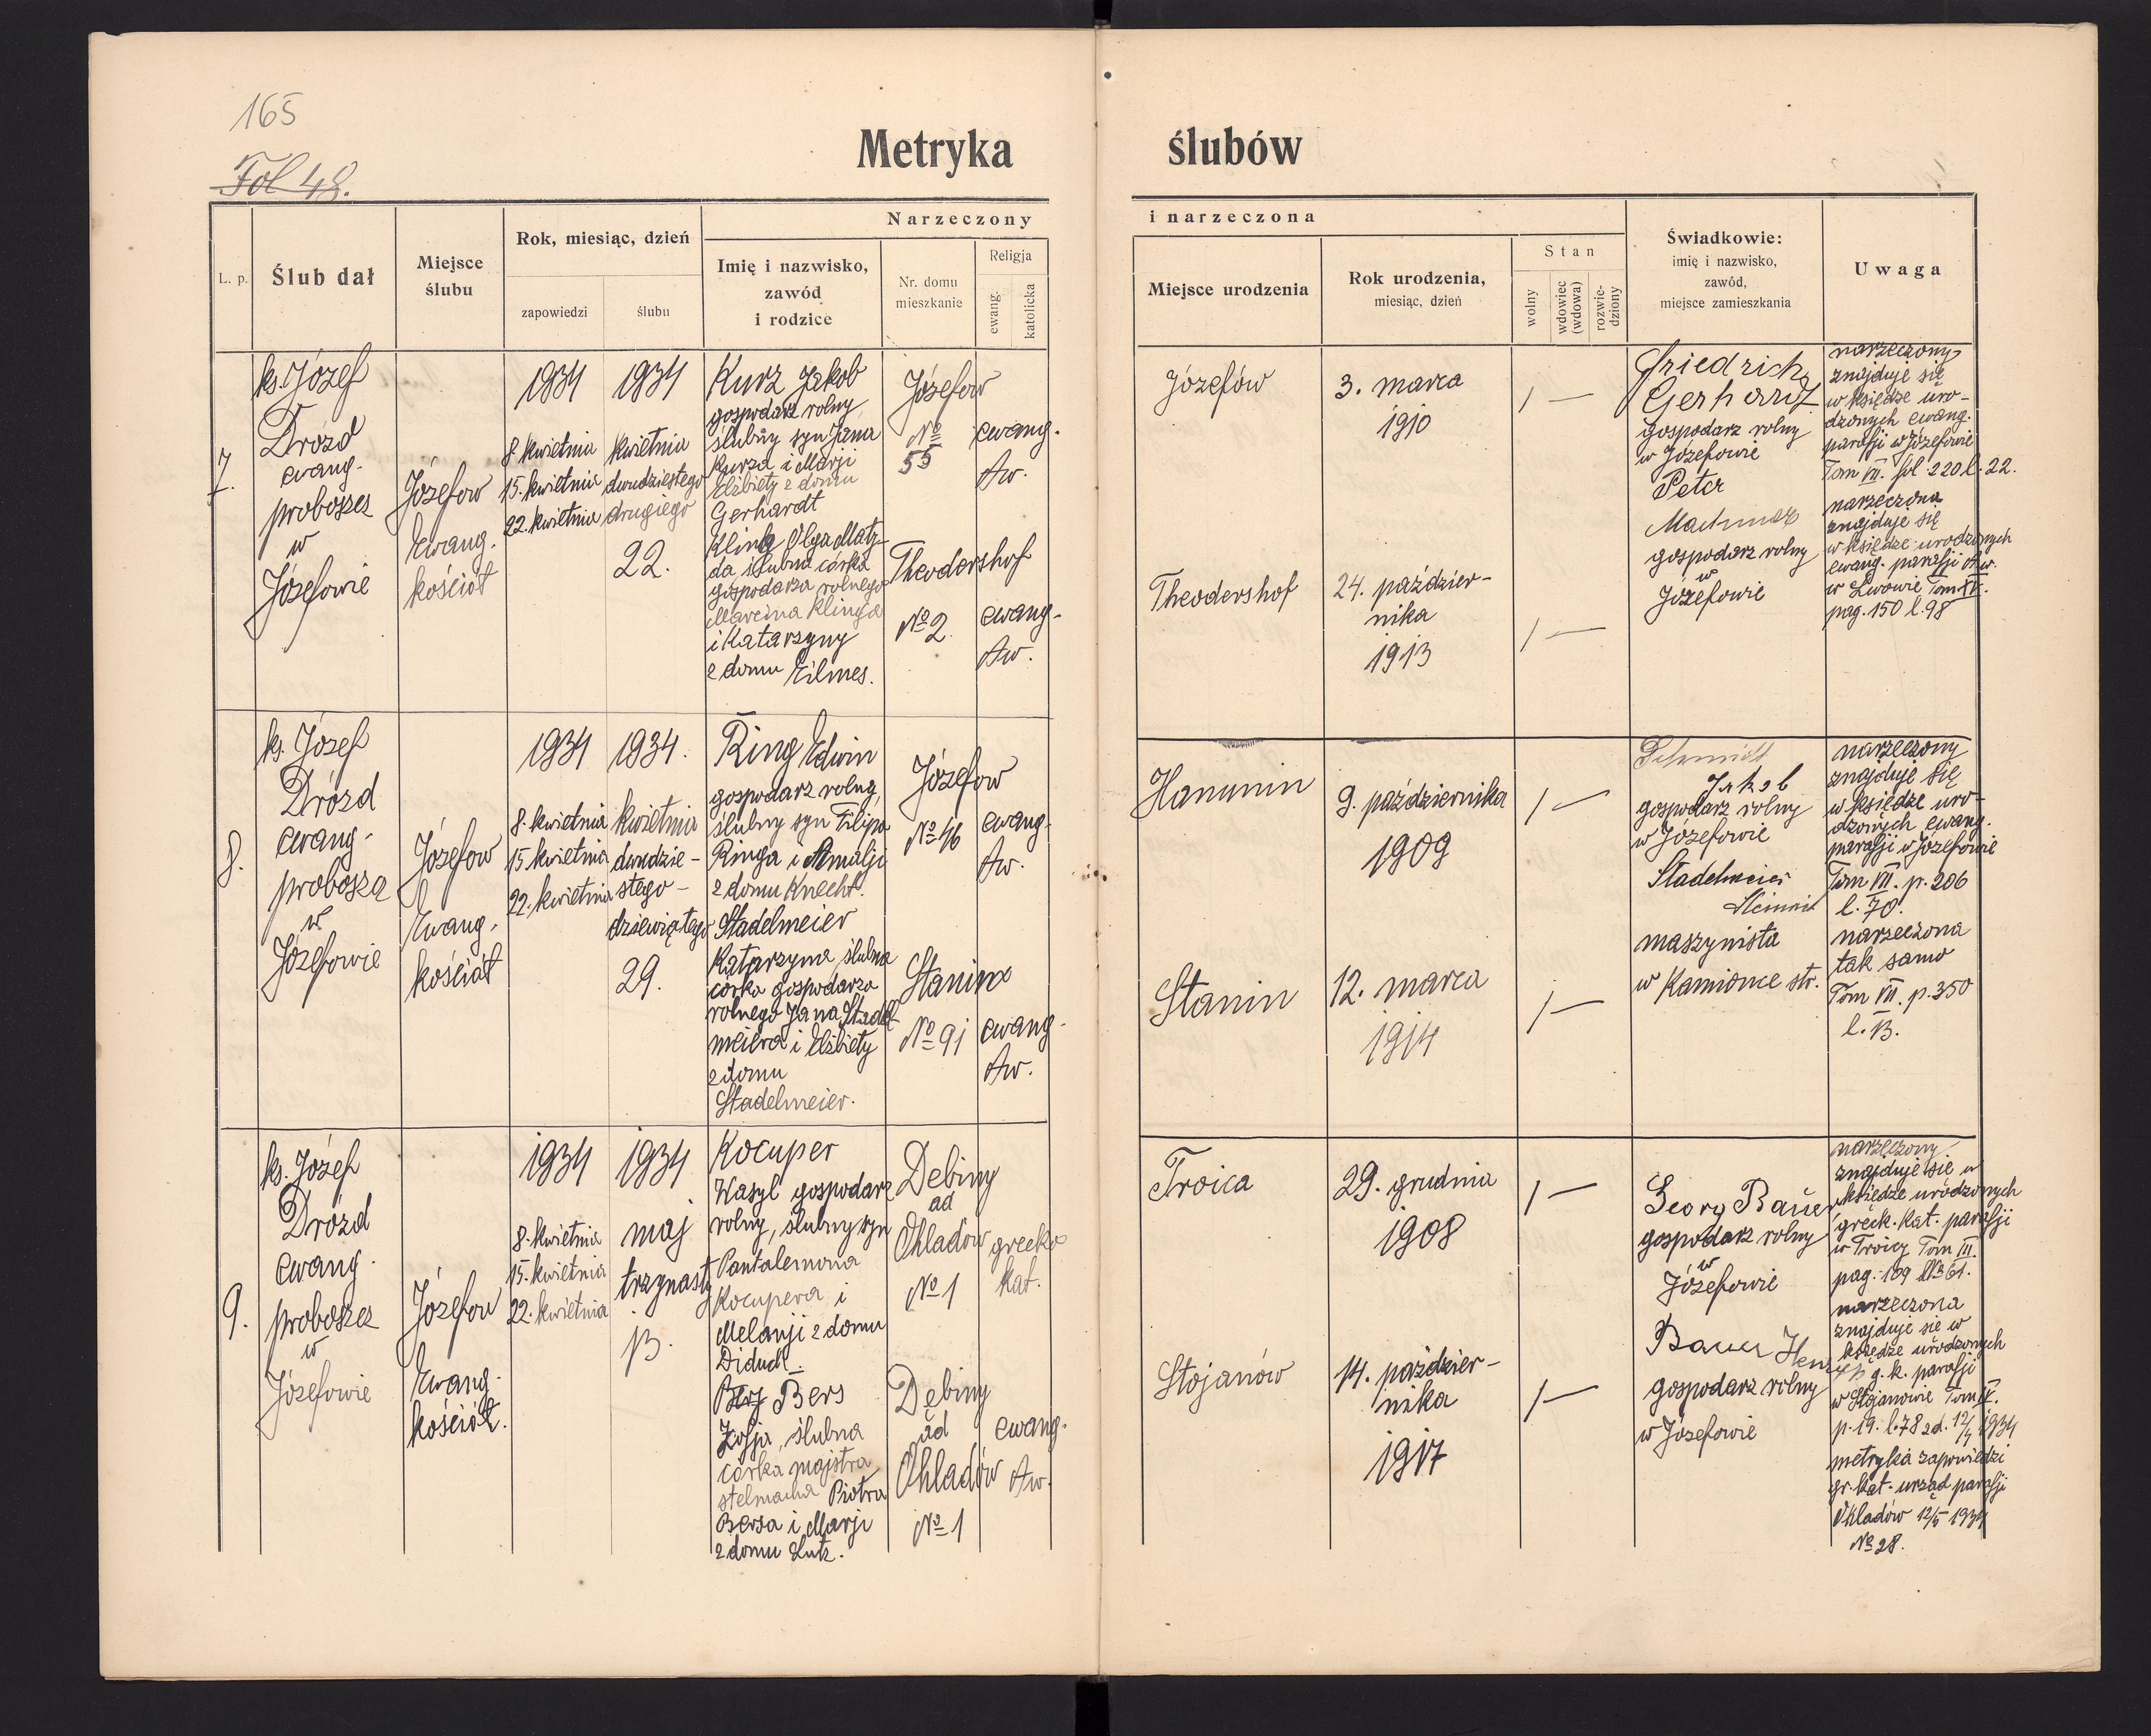 165
Fol 48.
Metryka ślubów
Narzeczony i narzeczona
L. p.
Ślub dał
Miejsce
ślubu
Rok, miesiąc, dzień
zapowiedzi
ślubu
Imię i nazwisko,
zawód
i rodzice
Nr. domu
mieszkanie
Religja
ewang.
katolicka
Miejsce urodzenia
Rok urodzenia,
miesiąc, dzień
Stan
wolny
wdowiec
(wdowa)
rozwie-
dziony
Świadkowie:
imię i nazwisko,
zawód,
miejsce zamieszkania
Uwaga
7.
ks. Józef
Drozd
ewang.
proboszcz
w
Józefowie
Józefow
Ewang.
kościół
1934
8. kwietnia
15. kwietnia
22. kwietnia
1934
kwietnia
dwudziestego
drugiego
22.
Kurz Jakob
gospodarz rolny
ślubny syn Jana
Kurza i Marji
Elżbiety z domu
Gerhardt
Kling Olga Matyl-
da ślubna córka
gospodarza rolnego
Marcina Klinga
i Katarzyny
z domu Eilmes.
Józefow
No
55
Theodorshof
No 2
ewang.
Aw.
ewang.
Aw.
Józefów
Theodershof
3. marca
1910
24. paździer-
nika
1913
1 —
1 —
Friedrich
Gerhardt
gospodarz rolny
w Józefowie
Peter
gospodarz rolny
w
Józefowie
narzeczony
znajduje się
w księdze uro-
dzonych ewang.
parafji w Józefowie
Tom VII. fol. 220 l. 22.
narzeczona
znajduje się
w księdze urodzonych
ewang. parafji Aw.
w Lwowie Tom
pag. 150 l. 98
8.
ks. Józef
Drozd
ewang.
proboszcz
w
Józefowie
Józefow
Ewang.
kościół
1934
8. kwietnia
15. kwietnia
22. kwietnia
1934.
kwietnia
dwudzie-
stego-
dziewiątego
29.
Ring Edwin
gospodarz rolny,
ślubny syn Filipa
Ringa i Amalji
z domu Knecht.
Stadelmeier
Katarzyna ślubna
córka gospodarza
rolnego Jana Stadel-
meiera i Elżbiety
z domu
Stadelmeier.
Józefow
No 46
Stanin
No 91
ewang.
Aw.
ewang.
Aw.
Hanunin
Stanin
9. października
1909
12. marca
1914
1 —
1 —
Schmidt
Jakob
gospodarz rolny
w Józefowie
Stadelmeier
maszynista
w Kamionce str.
narzeczony
znajduje się
w księdze uro-
dzonych ewang.
parafji w Józefowie
Tom VII. p. 206
l. 70.
narzeczona
tak samo
Tom VII. p. 350
l. 13.
9.
ks. Józef
Drozd
ewang.
proboszcz
w
Józefowie
Józefow
Ewang.
kościół.
1934
8. kwietnia
15. kwietnia
22. kwietnia
1934
maj
trzynasty
13.
Kocuper
Wasyl gospodarz
rolny, ślubny syn
Pantalemona
Kocupera i
Melanji z domu
Diduch.
Bers
Zofja, ślubna
córka majstra
stelmacha Piotra
Bersa i Marji
z domu Lutz.
Debiny
ad
Ohladow
No 1
Dębiny
ad
Ohladów
No 1
grecko
kat.
ewang.
Aw.
Troica
Stojanów
29. grudnia
1908
14. paździer-
nika
1917
1 —
1 —
Georg Bauer
gospodarz rolny
w
Józefowie
Bauer Henryk
gospodarz rolny
w Józefowie
narzeczony
znajduje się w
księdze urodzonych
greck. kat. parafji
w Troicy Tom III.
pag. 109 No 61.
narzeczona
znajduje się w
księdze urodzonych
g. k. parafji
w Stojanowie Tom
p. 19. l. 78 zd. 12/4 1934
metryka zapowiedzi
gr. kat. urząd parafji
Ohladów 12/5 1934
No 28.